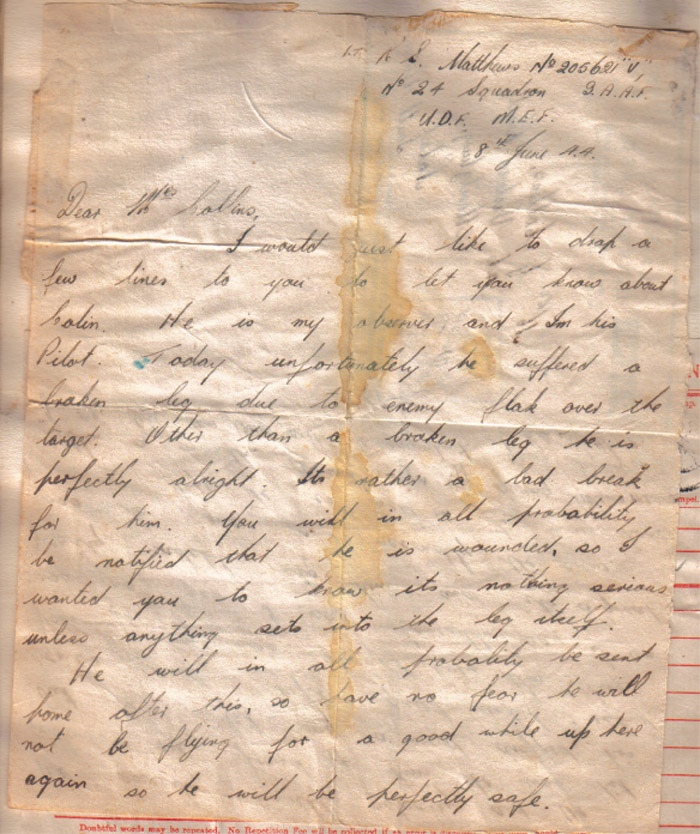 Lt K E. Matthews No 205621 "V",
No 24 Squadron S.A.A.F.
U.D.F. M.E.F.
8th June 44.
Dear Mrs Collins,
I would just like to drop a
few lines to you to let you know about
Colin. He is my observer and Im his
Pilot. Today unfortunately he suffered a
broken leg due to enemy flak over the
target. Other than a broken leg he is
perfectly alright. Its rather a bad break
for him. You will in all probability
be notified that he is wounded, so I
wanted you to know its nothing serious
unless anything sets into the leg itself.
He will in all probality be sent
home after this, so have no fear he will
not be flying for a good while up here
again so he will be perfectly safe.
Doubtful words may be repeated. No Repetition Fee will be collected if an error is